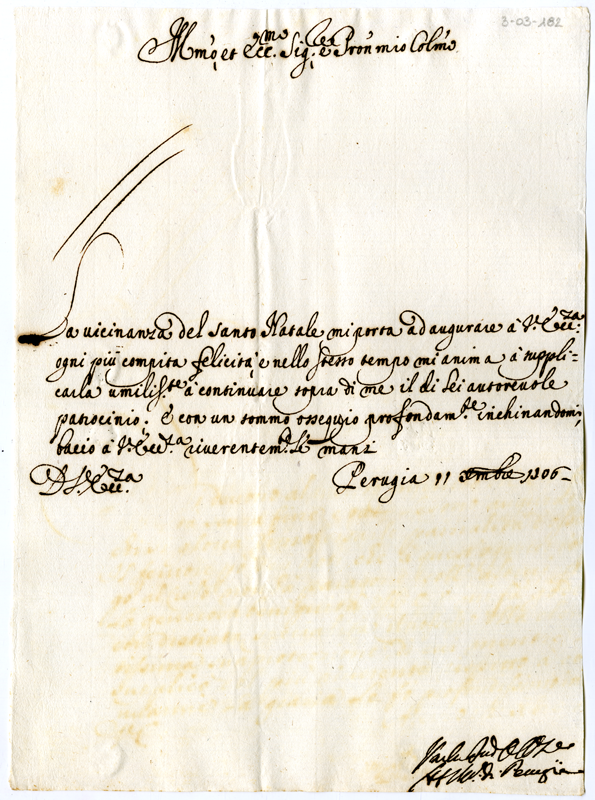 3-03-182
Ill.mo et Ecc.mo Sig.re e Pron mio Colmo
La uicinanza del santo Natale mi porta ad augurare à V. Ecc.za
ogni più compita felicità e nello stesso tempo mi anima à suppli=
carla umilis.te à continuare sopra di me il di lei autoreuole
patrocinio. E con un sommo ossequio profondam.te inchinandomi,
bacio à V. Ecc.za riuerentem.te le mani
D. V. Ecc.za Perugia 11 1706
di Perugia